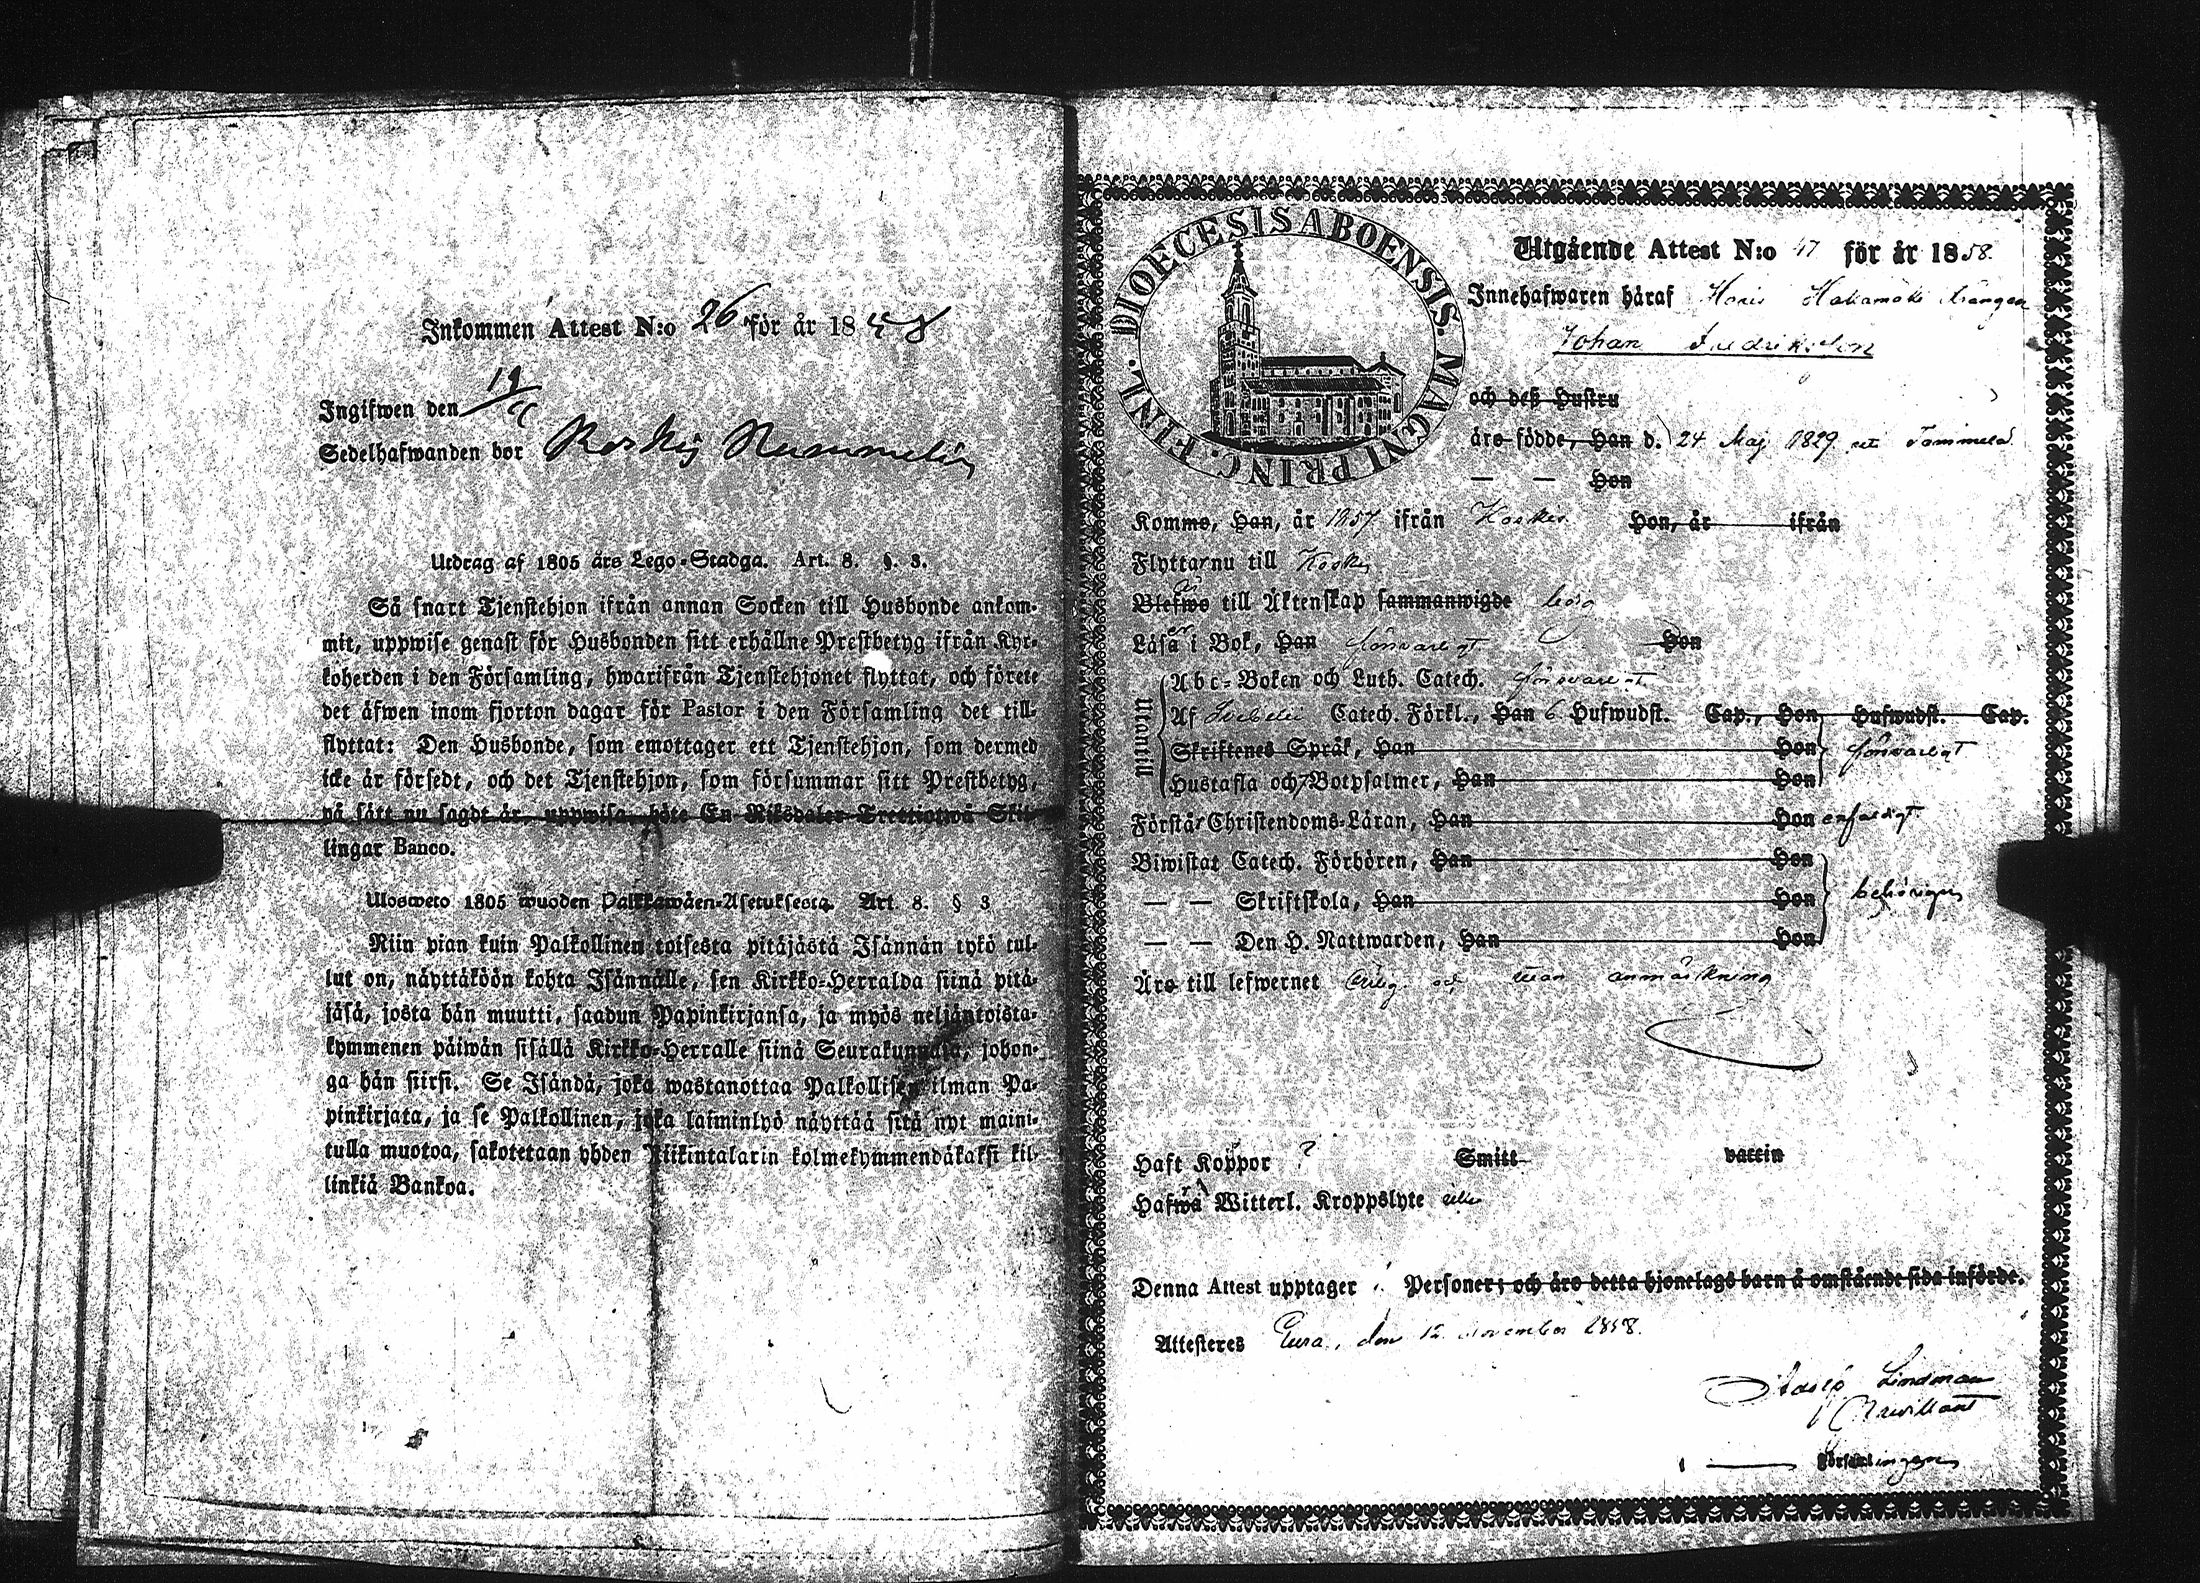 Inkommen Attest N:o 26 för år 1858
Ingifwen den 19/11
Sedelhafwanden bor Koskis Nummelis
Utdrag af 1805 års Lego-Stadga. Art. 8. §. 3.
Så snart Tjenstehjon ifrån annan Socken till Husbonde ankom-
mit, uppwise genast för Husbonden sitt erhållne Prestbetyg ifrån Kyr-
koherden i den Församling, hwarifrån Tjenstehjonet flyttat, och förete
det äfwen inom fjorton dagar för Pastor i den Församling det till-
flyttat: Den Husbonde, som emottager ett Tjenstehjon, som dermed
icke är försedt, och det Tjenstehjon, som försummar sitt Prestbetyg,
på sätt nu sagdt är, uppwisa, böte En Riksdaler Trettiotwå Skil-
lingar Banco.
Ulosweto 1805 wuoden Palkkawäen-Asetuksesta. Art. 8. § 3
Niin pian kuin Palkollinen toisesta pitäjästä Isännän tykö tul-
lut on, näyttäköön kohta Isännälle, sen Kirkko-Herralda siinä pitä-
jäsä, josta hän muutti, saadun Papinkirjansa, ja myös neljäntoista-
kymmenen päiwän sisällä Kirkko-Herralle siinä Seurakunnasa, johon-
ga hän siirsi. Se Isändä, joka wastanottaa Palkollisen ilman Pa-
pinkirjata, ja se Palkollinen, joka laiminlyö näyttää sitä nyt maini-
tulla muotoa, sakotetaan yhden Riikintalarin kolmekymmendäkaksi kil-
linkiä Bankoa.
DIOECESIS ABOENSIS. MAGNI PRINC. FINL.
Utgående Attest N:o 47 för år 1858.
Innehafwaren häraf Hakamäki drängen
Johan Fredriksson
och deß Hustru
äro födde, Han d. 24 Maj 1829 Tammela
— — Hon
Kommo, Han, år 1857 ifrån Koskis Hon, år ifrån
Flyttar nu till Koskis
Blefwo till Äktenskap sammanwigde ledig
Läsa i Bok, Han försvarligt Hon
Utantill
Abc-Boken och Luth. Catech. försvarligt
Af Svebelii Catech. Förkl., Han 6 Hufwudst. Cap., Hon Hufwudst. Cap.
Skriftenes Språk, Han Hon försvarligt
Hustafla och 7 Botpsalmer, Han Hon
Förstår Christendoms-Läran, Han Hon enfaldigt
Biwistat Catech. Förhören, Han Hon
— — Skriftskola, Han Hon behörigen
— — Den H. Nattwarden, Han Hon
Äro till lefwernet ärlig och utan anmärkning
Haft Koppor ? Smitt vaccin
Hafwa Witterl. Kroppslyte
Denna Attest upptager Personer; och äro detta hjonelags barn å omstående sida införde.
Attesteres Eura, den 12 November 1858.
Adolf Lindman
Församlingen